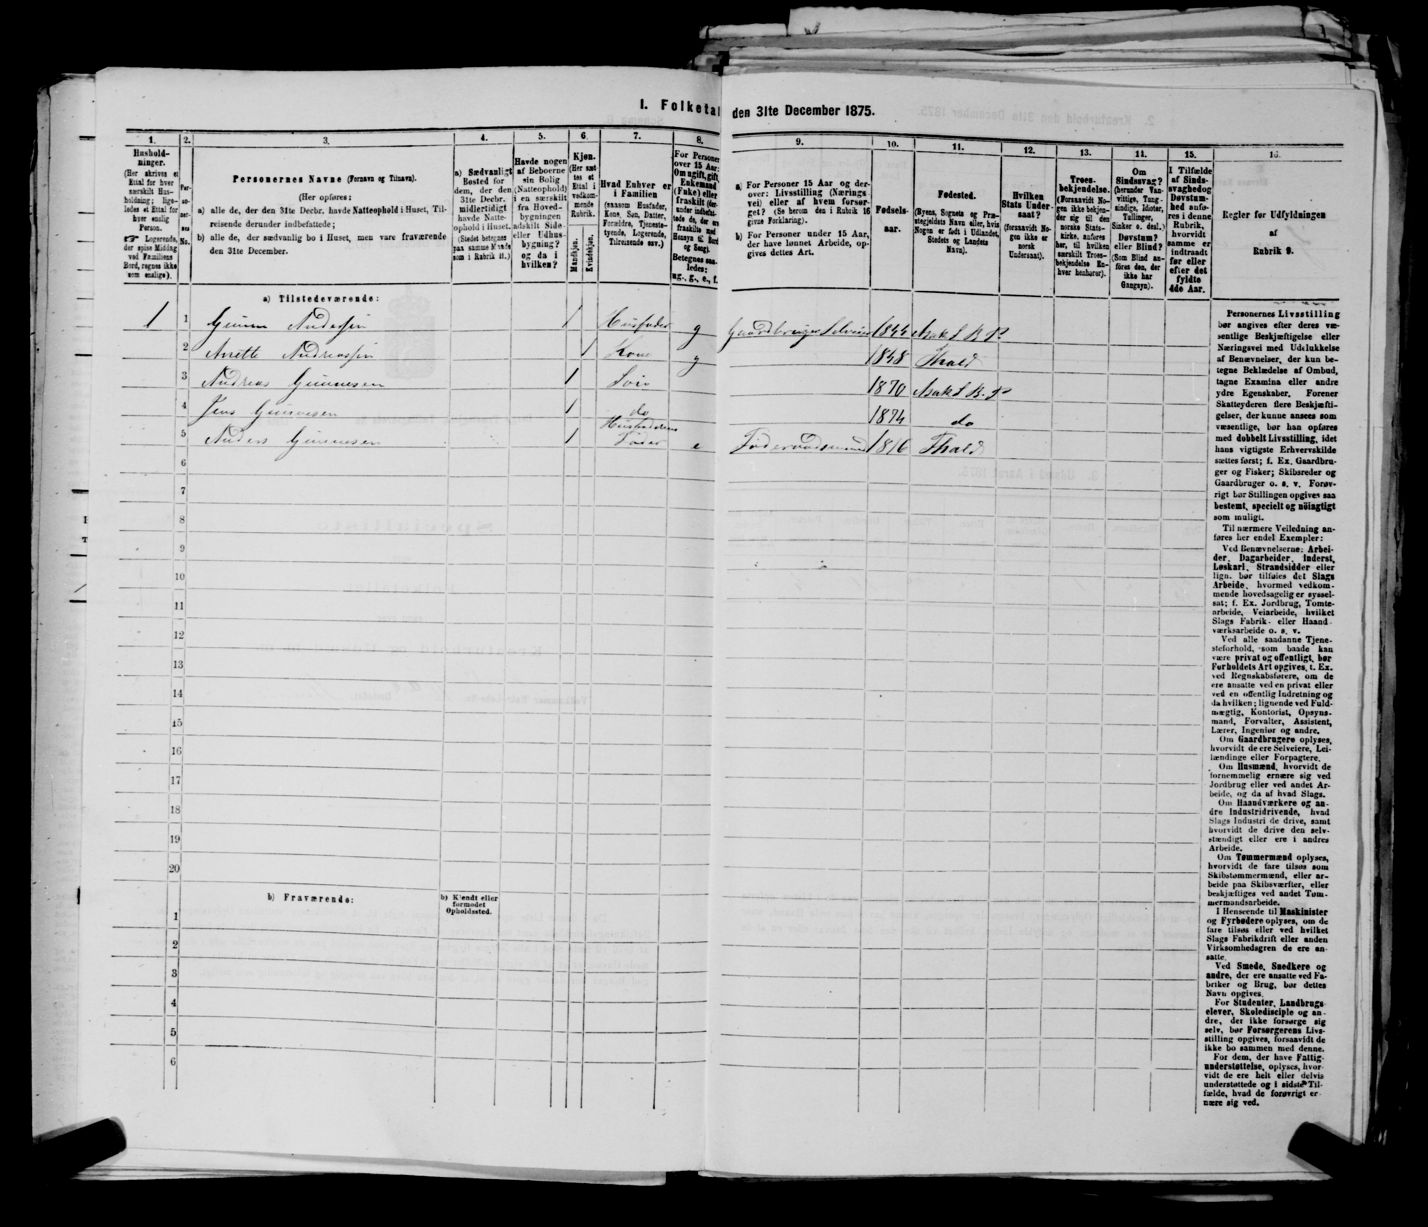 I. Folketal den 31te December 1875.
1.
2.
3.
4.
5.
6.
7.
8.
9.
10.
11.
12.
13.
14.
15.
16.
Hushold-
ninger.
(Her skrives et
Ettal for hver
særskilt Hus-
holdning; lige-
ledes et Ettal for
hver enslig
Person.
☞ Logerende,
der spise Middag
ved Familiens
Bord, regnes ikke
som enslige).
Per-
so-
ner-
nes
No.
Personernes Navne (Fornavn og Tilnavn).
(Her opføres:
a) alle de, der den 31te Decbr. havde Natteophold i Huset, Til-
reisende derunder indbefattede;
b) alle de, der sædvanlig bo i Huset, men vare fraværende
den 31te December.
a) Sædvanligt
Bosted for
dem, der den
31te Decbr.
midlertidigt
havde Natte-
ophold i Huset.
(Stedet betegnes
paa samme Maade
som i Rubrik 11.)
Havde nogen
af Beboerne
sin Bolig
(Natteophold)
i en særskilt
fra Hoved-
bygningen
adskilt Side-
eller Udhus-
bygning?
og da i
hvilken?
Kjøn.
(Her sæt-
tes et
Ettal i
vedkom-
mende
Rubrik.
Mandkjøn.
Kvindekjøn.
Hvad Enhver er
i Familien
(saasom Husfader,
Kone, Søn, Datter,
Forældre, Tjeneste-
tyende, Logerende,
Tilreisende osv.)
For Personer
over 15 Aar:
Om ugift, gift,
Enkemand
(Enke) eller
fraskilt
Betegnes saa-
ledes:
ug., g., e., f.
a) For Personer 15 Aar og der-
over: Livsstilling (Nærings-
vei) eller af hvem forsør-
get? (Se herom den i Rubrik 16
givne Forklaring).
b) For Personer under 15 Aar,
der have lønnet Arbeide, op-
gives dettes Art.
Fødsels-
aar.
Fødested.
(Byens, Sognets og Præ-
stegjeldets Navn eller, hvis
Nogen er født i Udlandet,
Stedets og Landets
Navn).
Hvilken
Stats Under-
saat?
(forsaavidt No-
gen ikke er
norsk
Undersaat).
Troes-
bekjendelse.
(Forsaavidt No-
gen ikke bekjen-
der sig til den
norske Stats-
kirke, anføres
her, til hvilken
særskilt Troes-
bekjendelse En-
hver henhører).
Om
Sindssvag?
(herunder Van-
vittige, Tung-
sindige, Idioter,
Tullinger,
Sinker o. desl.)
Døvstum?
eller Blind?
(Som Blind an-
føres den, der
ikke har
Gangsyn).
I Tilfælde
af Sinds-
svaghed og
Døvstum-
hed anfø-
res i denne
Rubrik,
hvorvidt
samme er
indtraadt
før eller
efter det
fyldte
4de Aar.
Regler for Udfyldningen
af
Rubrik 9.
a) Tilstedeværende:
1 1 Gunner Andersen 1 Husfader g Gaardbruger Selveier 1844 Asak S. B. P.
2 Anette Andreassen 1 Kone g 1848 Thald
3 Andreas Gunnesen 1 Søn 1870 Asak S B. P
4 Jens Gunnesen 1 do 1874 do
5 Anders Gunnesen 1 Husfaderens Fader e Føderaadsmand 1816 Thald
6
7
8
9
10
11
12
13
14
15
16
17
18
19
20
b) Fraværende:
b) Kjendt eller
formodet
Opholdssted.
1
2
3
4
5
6
Personernes Livsstilling
bør angives efter deres væ-
sentlige Beskjæftigelse eller
Næringsvei med Udelukkelse
af Benævnelser, der kun be-
tegne Beklædelse af Ombud,
tagne Examina eller andre
ydre Egenskaber. Forener
Skatteyderen flere Beskjæfti-
gelser, der kunne ansees som
væsentlige, bør han opføres
med dobbelt Livsstilling, idet
hans vigtigste Erhvervskilde
sættes først; f. Ex. Gaardbru-
ger og Fisker; Skibsreder og
Gaardbruger o. s. v. Forøv-
rigt bør Stillingen opgives saa
bestemt, specielt og nöiagtigt
som muligt.
Til nærmere Veiledning an-
føres her endel Exempler:
Ved Benævnelserne: Arbei-
der, Dagarbeider, Inderst,
Løskarl, Strandsidder eller
lign. bør tilføies det Slags
Arbeide, hvormed vedkom-
mende hovedsagelig er syssel-
sat; f. Ex. Jordbrug, Tomte-
arbeide, Veiarbeide, hvilket
Slags Fabrik- eller Haand-
værksarbeide o. s. v.
Ved alle saadanne Tjene-
steforhold, som baade kan
være privat og offentligt, bør
Forholdets Art opgives, t. Ex.
ved Regnskabsførere, om de
ere ansatte ved en privat eller
ved en offentlig Indretning og
da hvilken; lignende ved Fuld-
mægtig, Kontorist, Opsyns-
mand, Forvalter, Assistent,
Lærer, Ingeniør og andre.
Om Gaardbrugere oplyses,
hvorvidt de ere Selveiere, Lei-
lændinge eller Forpagtere.
Om Husmænd, hvorvidt de
fornemmelig ernære sig ved
Jordbrug eller ved andet Ar-
beide, og da af hvad Slags.
Om Haandværkere og an-
dre Industridrivende, hvad
Slags Industri de drive, samt
hvorvidt de drive den selv-
stændigt eller ere i andres
Arbeide.
Om Tømmermænd oplyses,
hvorvidt de fare tilsøs som
Skibstømmermænd, eller ar-
beide paa Skibsværfter, eller
beskjæftiges ved andet Tøm-
mermandsarbeide.
I Henseende til Maskinister
og Fyrbødere oplyses, om de
fare tilsøs eller ved hvilket
Slags Fabrikdrift eller anden
Virksomhedsgren de ere an-
satte.
Ved Smede, Snedkere og
andre, der ere ansatte ved Fa-
briker og Brug, bør dettes
Navn opgives.
For Studenter, Landbrugs-
elever, Skoledisciple og an-
dre, der ikke forsørge sig
selv, bør Forsørgerens Livs-
stilling opgives, forsaavidt de
ikke bo sammen med denne.
For dem, der have Fattig-
understøttelse, oplyses, hvor-
vidt de ere helt eller delvis
understøttede og i sidste Til-
fælde, hvad de forøvrigt er-
nære sig ved.